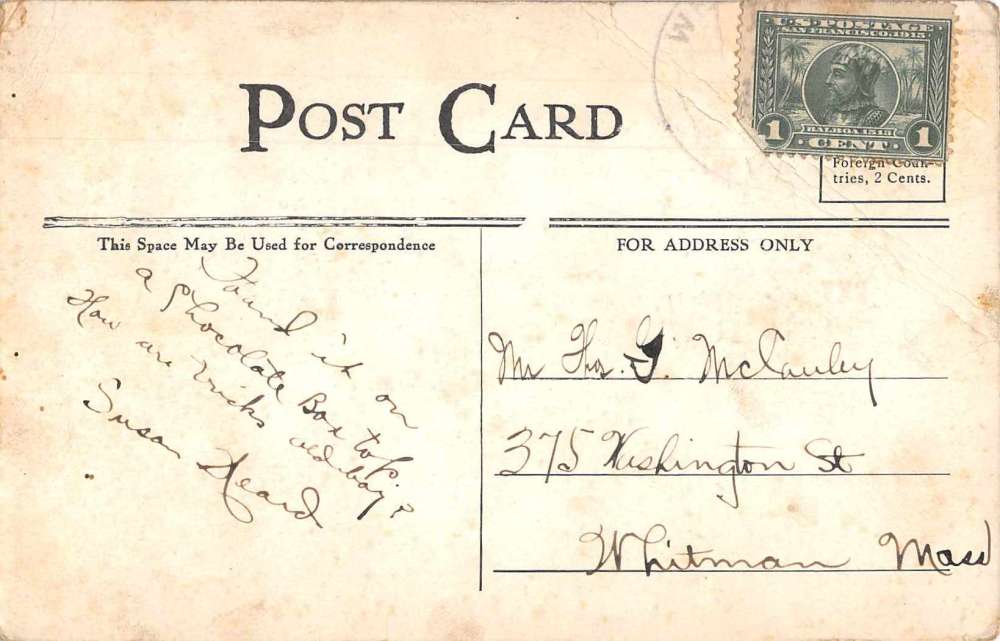 POST CARD
U.S. POSTAGE
SAN FRANCISCO, 1915
BALBOA 1513
1 CENT 1
Foreign Coun-
tries, 2 Cents.
This Space May Be Used for Correspondence
FOR ADDRESS ONLY
Found it on
a Chocolate Box top.
How are tricks old boy?
Susan Heard
Mr Thos. G. McCauley
375 Washington St
Whitman Mass